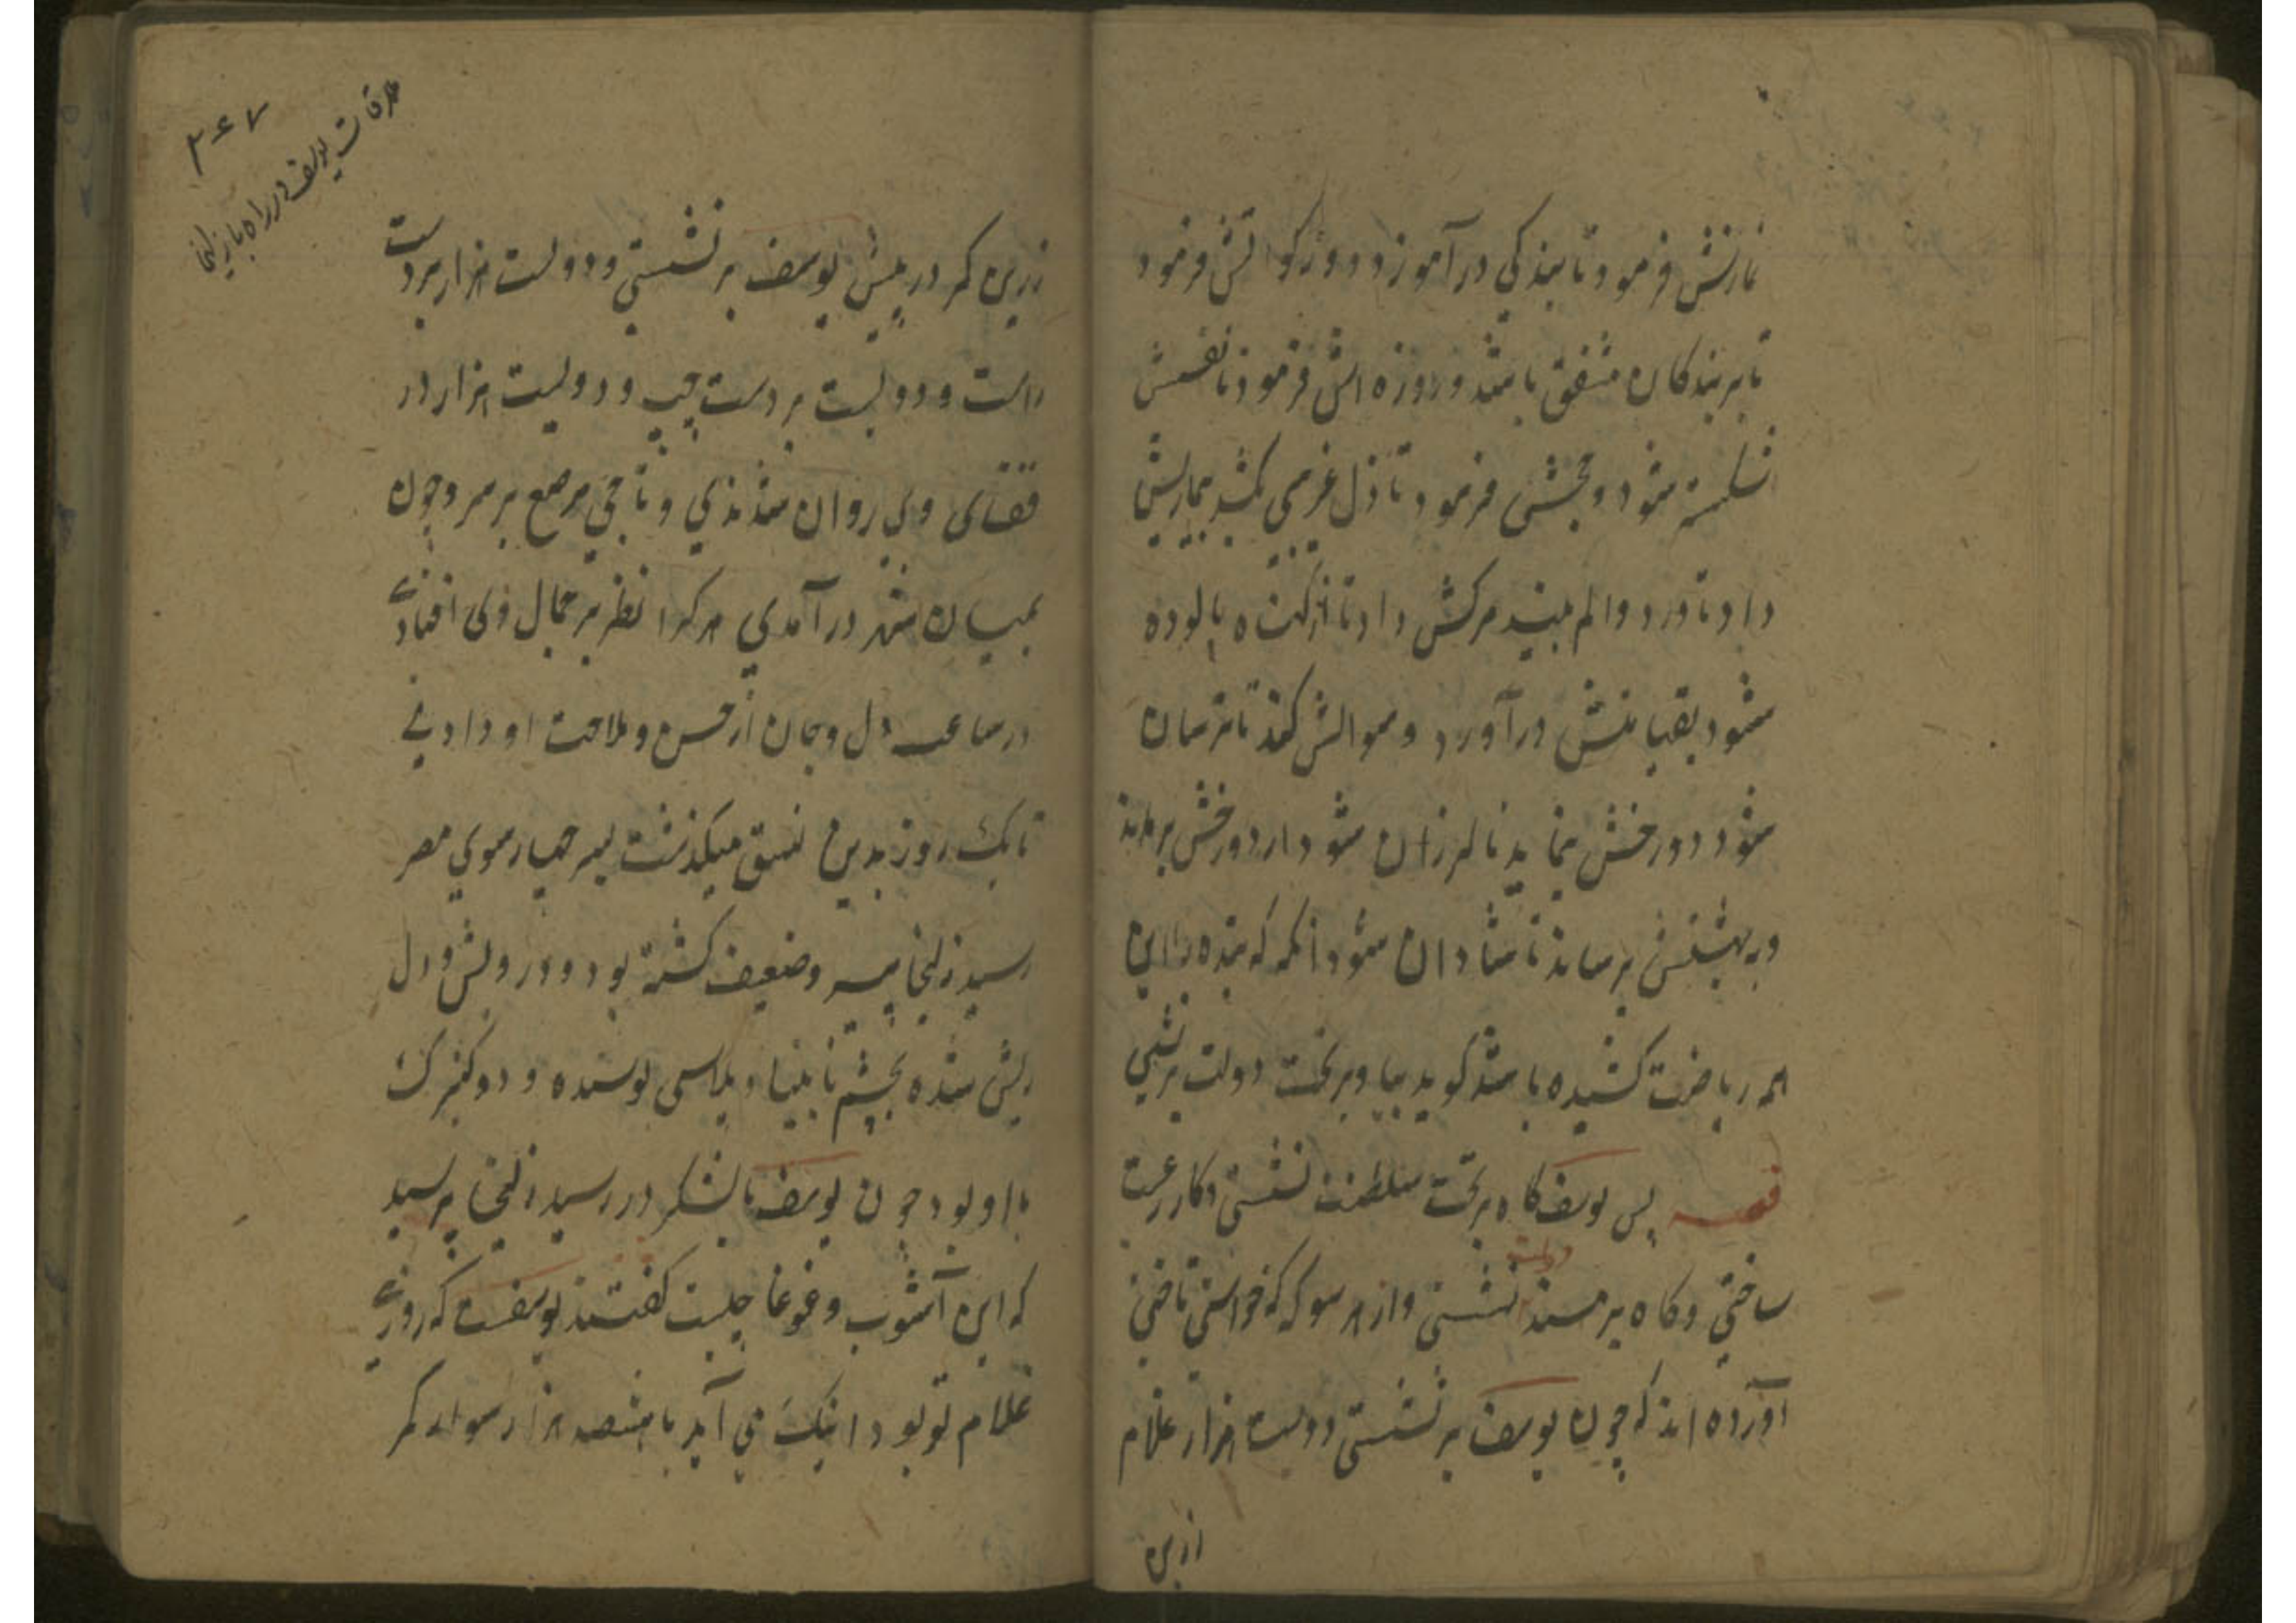 نمازش فرمود تا بندکی در آموزد و زکواتش فرمود
تا بر بندکان مشفق باشد و روزه اش فرمود تا نفسش
شکسته شود و حجش فرمود تا ذل غریبی کشد بیماریش
داد تا درد و الم بیند مرکش داد تا از کناه پالوده
شود بقیامتش درآورد و سوالش کند تا ترسان
شود دوزخش بنماید تا لرزان شود از دوزخش برهاند
و ببهشتش برساند تا شادان شود انکه که بنده را این
همه ریاضت کشیده باشد کوید بیا و بر تخت دولت برنشین
قصه پس یوسف کاه بر تخت سلطنت نشستی و کار رعیت
ساختی و کاه بر مسند دولت نشستی و از هر سو که خواستی تاختی
آورده اند که چون یوسف برنشستی دویست هزار غلام
زرین
ملاقات یوسف در راه با زلیخا
۳۶۷
زرین کمر در پیش یوسف برنشستی و دویست هزار بر دست
راست و دویست بر دست چپ و دویست هزار در
قفای وی روان شدندی و تاجی مرصع بر سر و چون
بمیان شهر درآمدی هرکرا نظر بر جمال وی افتادی
در ساعت دل و جان از حسن و ملاحت او دادی
تا یک روز بدین نسق میکذشت بسر چهار سوی مصر
رسید زلیخا پیر و ضعیف کشته بود و درویش و دل
ریش شده بچشم نابینا و پلاسی پوشیده و دو کنیزک
با او بود چون یوسف با لشکر در رسید زلیخا پرسید
که این آشوب و غوغا چیست کفتند یوسفست که روزی
غلام تو بود اینک می آید با هشصد هزار سوار کمر